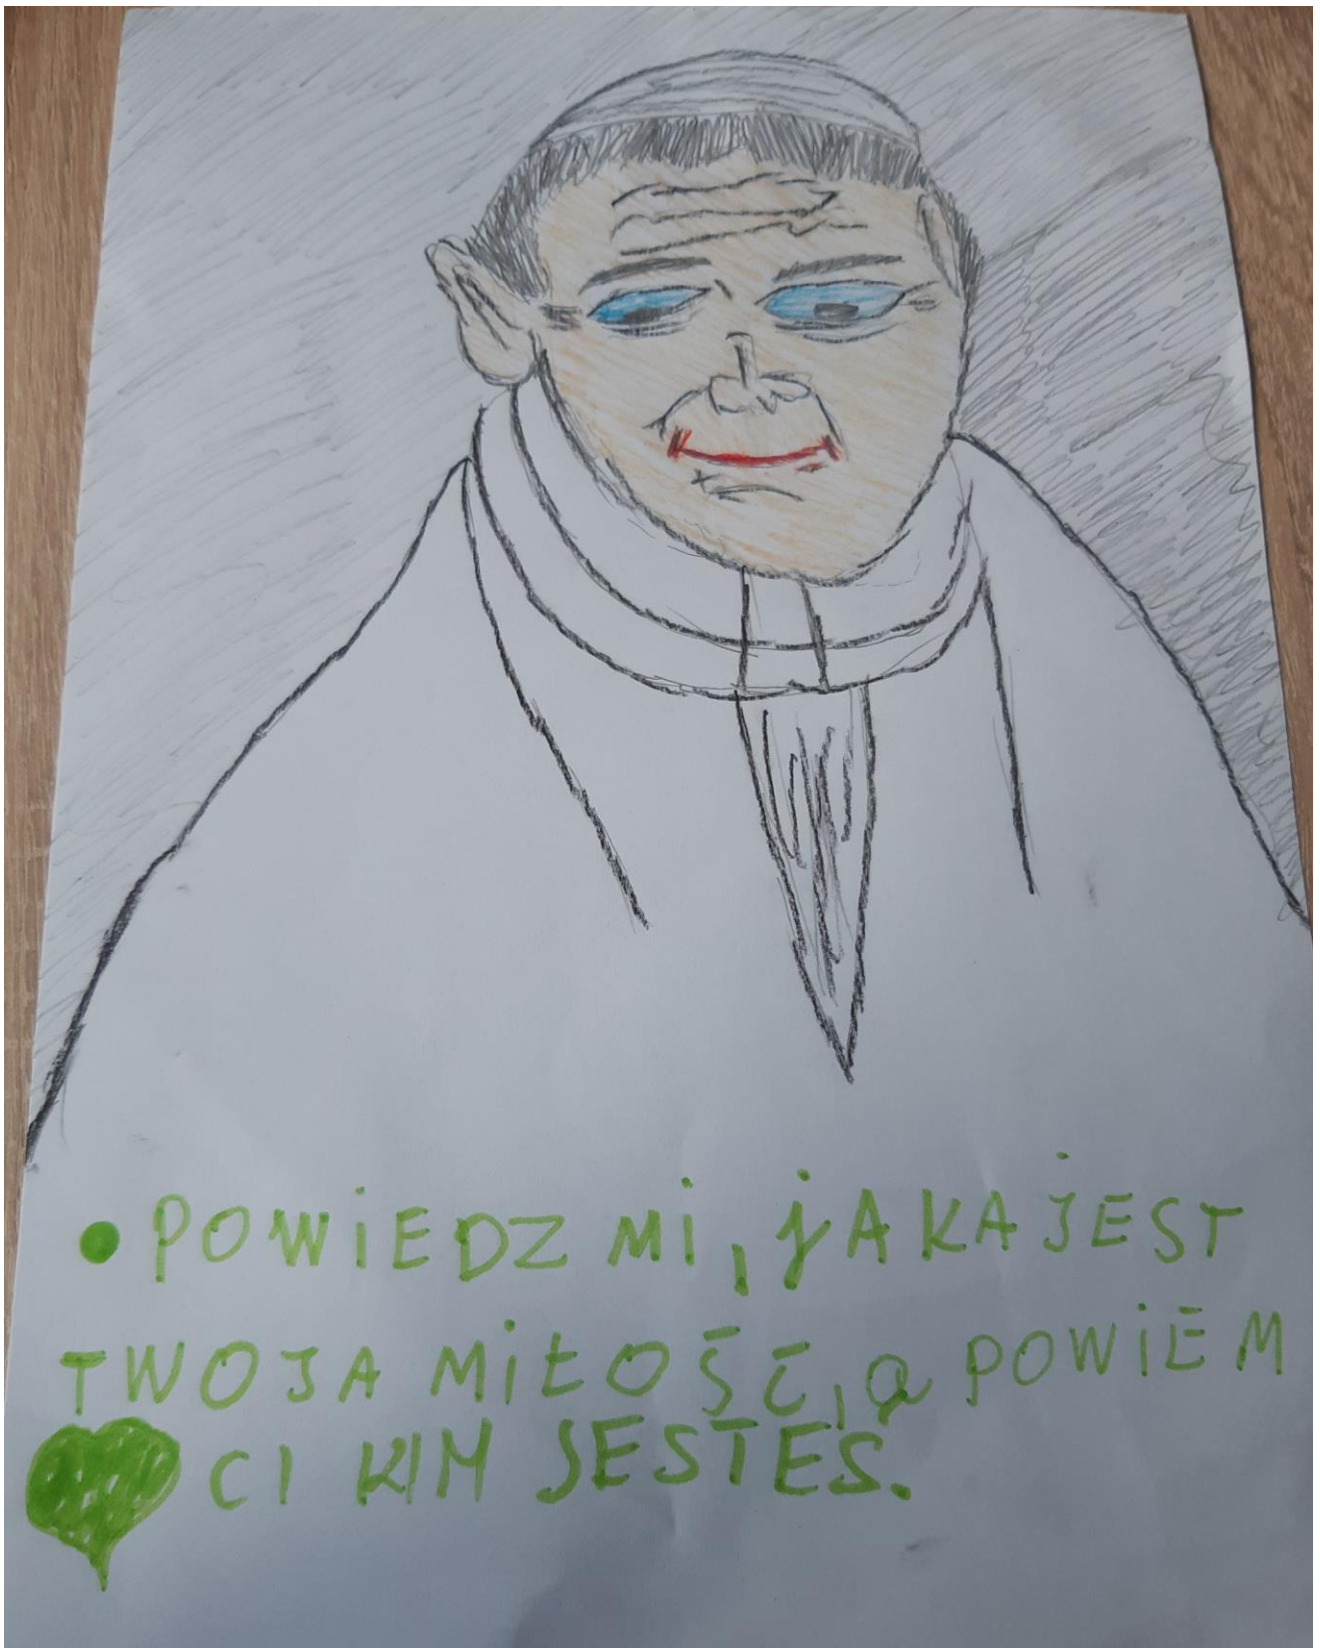 • POWIEDZ MI, jAKA JEST
TWOJA MIŁOŚĆ, a POWIEM
CI KIM JESTES.